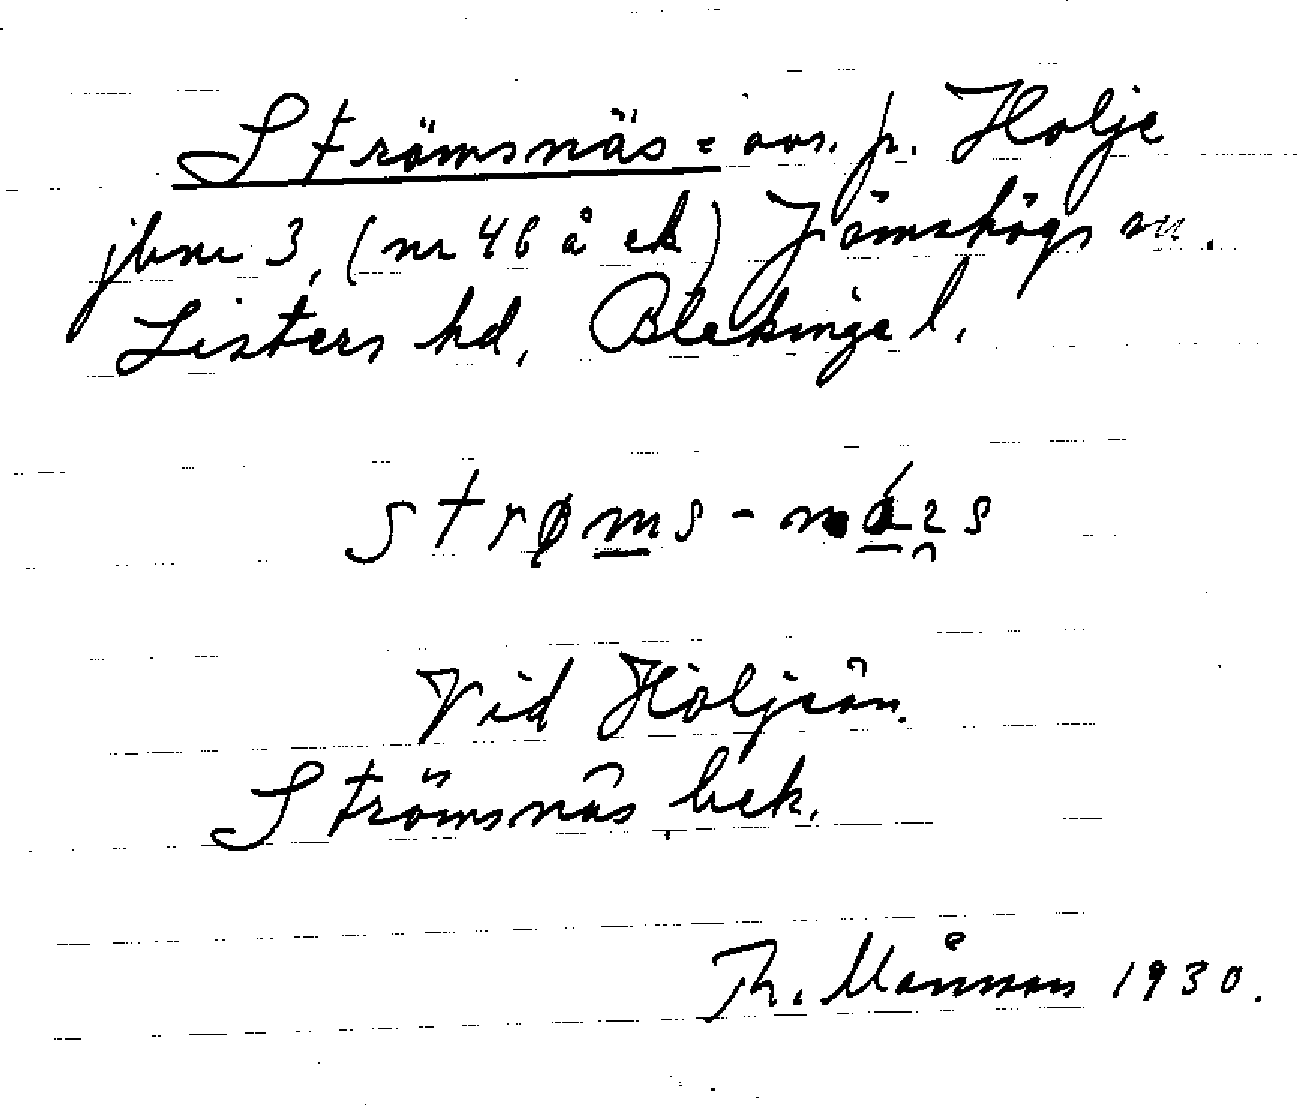 Strömsnäs = avs. fr. Holje
jbnr 3, (nr 46 å ek) Jämshögs sn.
Listers hd, Blekinge l.
strøms-
Vid Holjeån.
Strömsnäs bek.
Th. Månsson 1930.